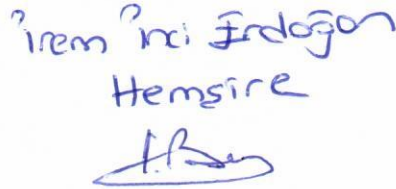 İrem İnci Erdoğan
Hemşire